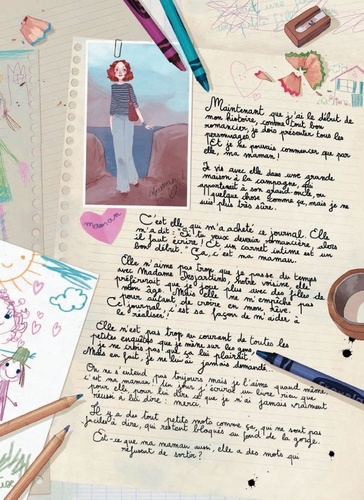 Maintenant que j'ai le début de
mon histoire, comme tout bon
romancier, je dois présenter tous les
personnages.
Et je ne pouvais commencer que par
elle, ma maman !
Je vis avec elle dans une grande
maison à la campagne, qui
appartenait à son grand-oncle, ou
quelque chose comme ça, mais je ne
suis plus très sûre.
maman
C'est elle qui m'a acheté ce journal. Elle
m'a dit : "Si tu veux devenir romancière, alors
il faut écrire ! Et un carnet intime est un
bon début." Ça, c'est ma maman.
Elle n'aime pas trop que je passe du temps
avec Madame Desjardins, notre voisine, elle
préférerait que je joue plus avec des filles de
mon âge. Mais elle ne m'empêche pas
pour autant de croire en mon rêve.
Ce journal, c'est sa façon de m'aider à
le réaliser !
Elle n'est pas trop au courant de toutes les
petites enquêtes que je mène sur les gens,
je ne crois pas que ça lui plairait.
Mais en fait, je ne lui ai jamais demandé.
On ne s'entend pas toujours mais je l'aime quand même,
c'est ma maman ! Un jour, j'écrirai un livre rien que
pour elle, pour lui dire ce que je n'ai jamais vraiment
réussi à lui dire : merci.
Il y a de tout petits mots comme ça, qui ne sont pas
faciles à dire, qui restent bloqués au fond de la gorge.
Est-ce que ma maman aussi, elle a des mots qui
refusent de sortir ?